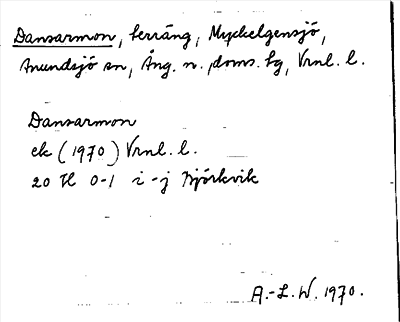 Dansarmon, terräng, Myckelgensjö,
Anundsjö sn, Ång. n. doms. bg, Vrnl. l.
Dansarmon
ek (1970) Vrnl. l.
20 H 0-1 i-j Björkvik
A.-L. W. 1970.